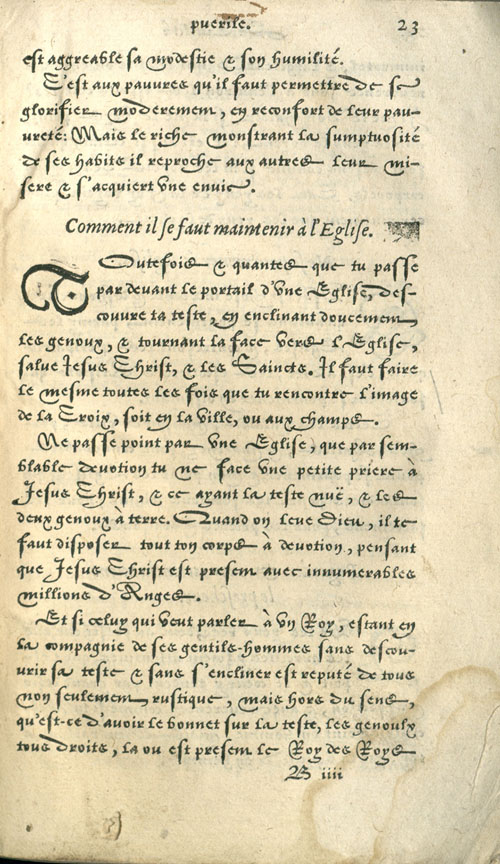 puerile. 23
est aggreable sa modestie & son humilité.
C'est aux pauvres qu'il faut permettre de se
glorifier moderement, en reconfort de leur pau-
vreté: Mais le riche monstrant la sumptuosité
de ses habits il reproche aux autres leur mi-
sere & s'acquiert vne envie.
Comment il se faut maintenir à l'Eglise.
Toutefois & quantes que tu passe
par devant le portail d'vne Eglise, des-
couvre ta teste, en enclinant doucement
les genoux, & tournant la face vers l'Eglise,
salue Jesus Christ, & les Saincts. Il faut faire
le mesme toutes les fois que tu rencontre l'image
de la Croix, soit en la ville, ou aux champs.
Ne passe point par vne Eglise, que par sem-
blable devotion tu ne face vne petite priere à
Jesus Christ, & ce ayant la teste nuë, & les
deux genoux à terre. Quand on leve Dieu, il te
faut disposer tout ton corps à devotion, pensant
que Jesus Christ est present avec innumerables
millions d'Anges.
Et si celuy qui veut parler à vn Roy, estant en
la compagnie de ses gentils-hommes sans descou-
vrir sa teste & sans s'encliner est reputé de tous
non seulement rustique, mais hors du sens,
qu'est-ce d'avoir le bonnet sur la teste, les genoulx
tous droits, la ou est present le Roy des Roys
B iiii